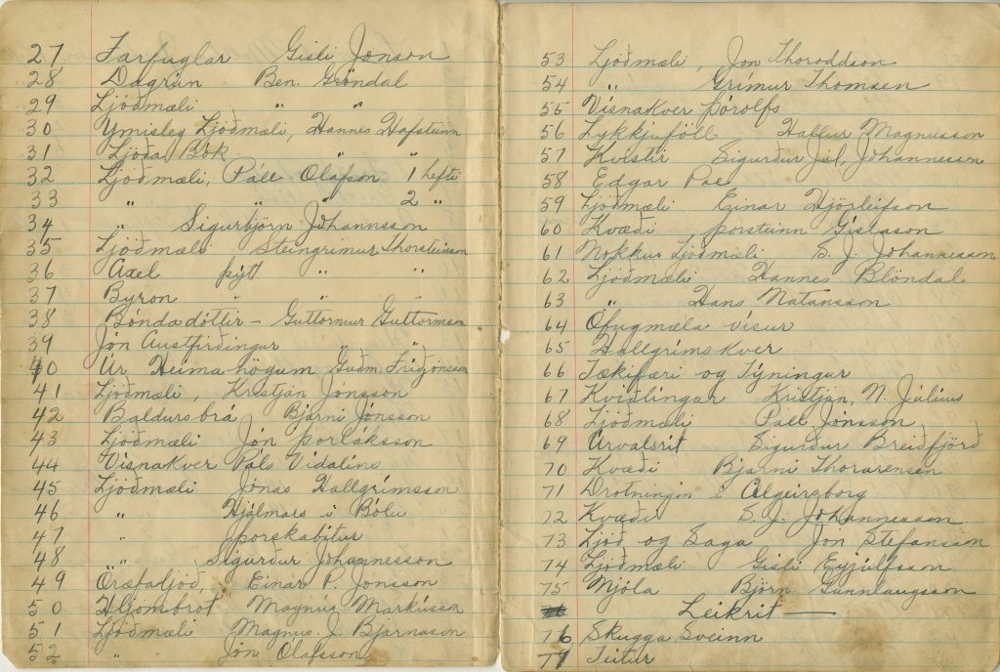 27 Farfuglar Gisli Jónson
28 Dagrún Ben. Gröndal
29 Ljóðmæli " "
30 Ymisleg Ljóðmæli, Hannes Hafsteinn
31 Ljóða Bók " "
32 Ljoðmæli, Páll Olafson 1 hefti
33 " " 2 "
34 " Sigurbjörn Jóhannsson
35 Ljóðmæli Steingrimur Thorsteinson
36 Axel þýtt " "
37 Byron " " "
38 Bóndadóttir – Guttormur Guttormson
39 Jón Austfirðingur " "
40 Úr Heimahögum Guðm. Friðjónson
41 Ljóðmæli, Kristján Jónsson
42 Baldursbrá Bjarni Jónsson
43 Ljóðmæli Jón Þorláksson
44 Visnakver Páls Vidalins
45 Ljóðmæli Jónas Hallgrímsson
46 " Hjálmars i Bólu
47 " Þorskabítur
48 " Sigurður Jóhannesson
49 Öræfaljóð, Einar P. Jonsson
50 Hljómbrot Magnús Markússon
51 Ljóðmæli Magnus. J. Bjarnason
52 " Jón Olafsson
53 Ljóðmæli, Jon Thoroddson
54 " Grímur Thomsen
55 Visnakver Þórolfs
56 Lykkjuföll Hallur Magnusson
57 Kvistir Sigurður Júl, Jóhannesson
58 Edgar Poe
59 Ljóðmæli Einar Hjörleifson
60 Kvæði Þorsteinn Gíslason
61 Nokkur Ljóðmæli S. J. Jóhannesson
62 Ljóðmæli Hannes Blöndal
63 " Hans Natansson
64 Öfugmæla visur
65 Hallgríms kver
66 Tækifæri og Týningur
67 Kviðlingar Kristján, N. Júlíus
68 Ljóðmæli Páll Jónsson
69 Úrvalsrit Sigurður Breiðfjörd
70 Kvæði Bjarni Thorarensen
71 Drotningin i Algeirsborg
72 Kvæði S. J. Jóhannesson
73 Ljóð og Saga Jón Stefansson
74 Ljóðmæli Gisli Eyjúlfsson
75 Mjöla Björn Gunnlaugsson
Leikrit
76 Skugga Sveinn
77 Teitur